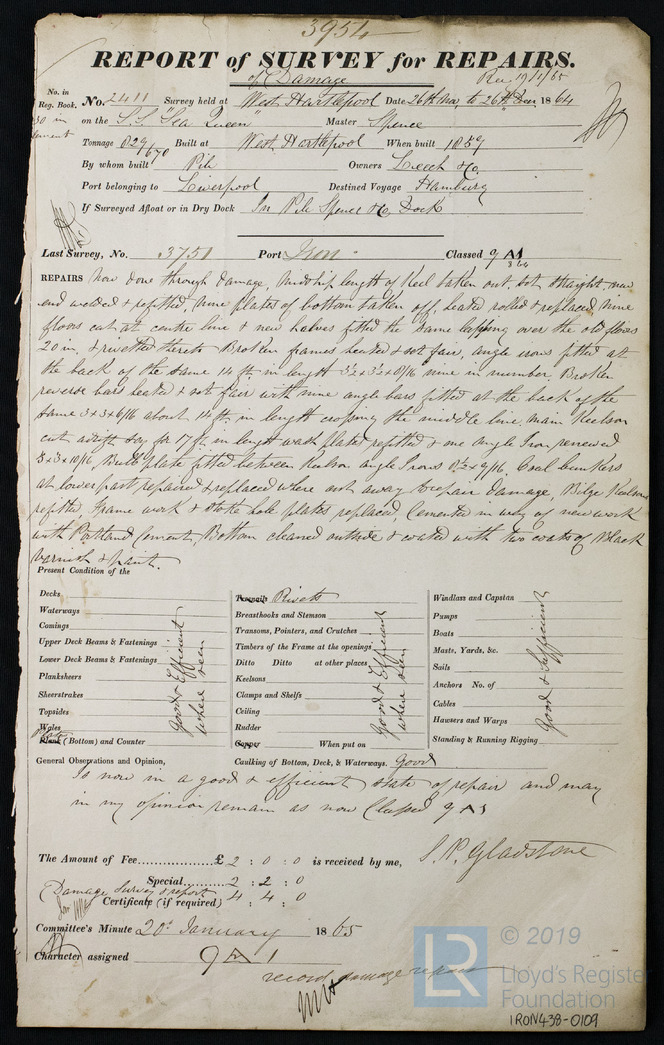 3954
REPORT of SURVEY for REPAIRS.
of Damage Rec 19/1/65
No. in Reg. Book. No. 2411 Survey held at West Hartlepool Date 26th Nov. to 26th Decr 1864
50 in
on the S.S. "Sea Queen" Master Spence
Tonnage 829 670 Built at West Hartlepool When built 1857
By whom built Pile Owners Leech & Co.
Port belonging to Liverpool Destined Voyage Hamburg
If Surveyed Afloat or in Dry Dock In Pile Spence & Co Dock
Last Survey, No. 3751 Port Iron Classed 9 A 1
3 64
REPAIRS Now done through damage, Midship length of Keel taken out, set straight, new
end welded & refitted, nine plates of bottom taken off, heated rolled & replaced nine
floors cut at centre line & new halves fitted the same lapping over the old floors
20 in. & rivetted thereto Broken frames heated & set fair, angle irons fitted at
the back of the same 14 ft in length 3½ x 3½ x 8/16 nine in number. Broken
reverse bars heated & set fair with nine angle bars fitted at the back of the
same 3 x 3 x 6/16 about 14 ft. in length crossing the middle line, main Keelson
cut for 17 ft in length wash plates refitted & one angle Iron renewed
5 x 3 x 10/16, Bulb plate fitted between Keelson angle Irons 9/16. Coal bunkers
at lower part repaired & replaced where cut away to repair damage, Bilge Keelsons
refitted, Frame work & stoke hole plates replaced, Cemented in way of new work
with Portland Cement, Bottom cleaned outside & coated with two coats of Black
varnish & paint.
Present Condition of the
Decks
Waterways
Comings
Upper Deck Beams & Fastenings
Lower Deck Beams & Fastenings
Planksheers
Sheerstrakes
Topsides
Wales
Plank (Bottom) and Counter
Plate
Good & Efficient
where seen
Treenails Rivets
Breasthooks and Stemson
Transoms, Pointers, and Crutches
Timbers of the Frame at the openings
Ditto Ditto at other places
Keelsons
Clamps and Shelfs
Ceiling
Rudder
Copper When put on
Caulking of Bottom, Deck, & Waterways. Good
Good & Efficient
where seen
Windlass and Capstan
Pumps
Boats
Masts, Yards, &c.
Sails
Anchors No. of
Cables
Hawsers and Warps
Standing & Running Rigging
Good & Sufficient
General Observations and Opinion,
Is now in a good & efficient state of repair and may
in my opinion remain as now Classed 9 A 1
The Amount of Fee £ 2 : 0 : 0 is received by me, S. P. Gladstone
Special 2 : 2 : 0
(Damage Survey & report
Certificate (if required) 4 : 4 : 0
Committee's Minute 20th January 1865
Character assigned 9 A 1
record damage repairs
LR © 2019
Lloyd's Register
Foundation
IRON438-0109